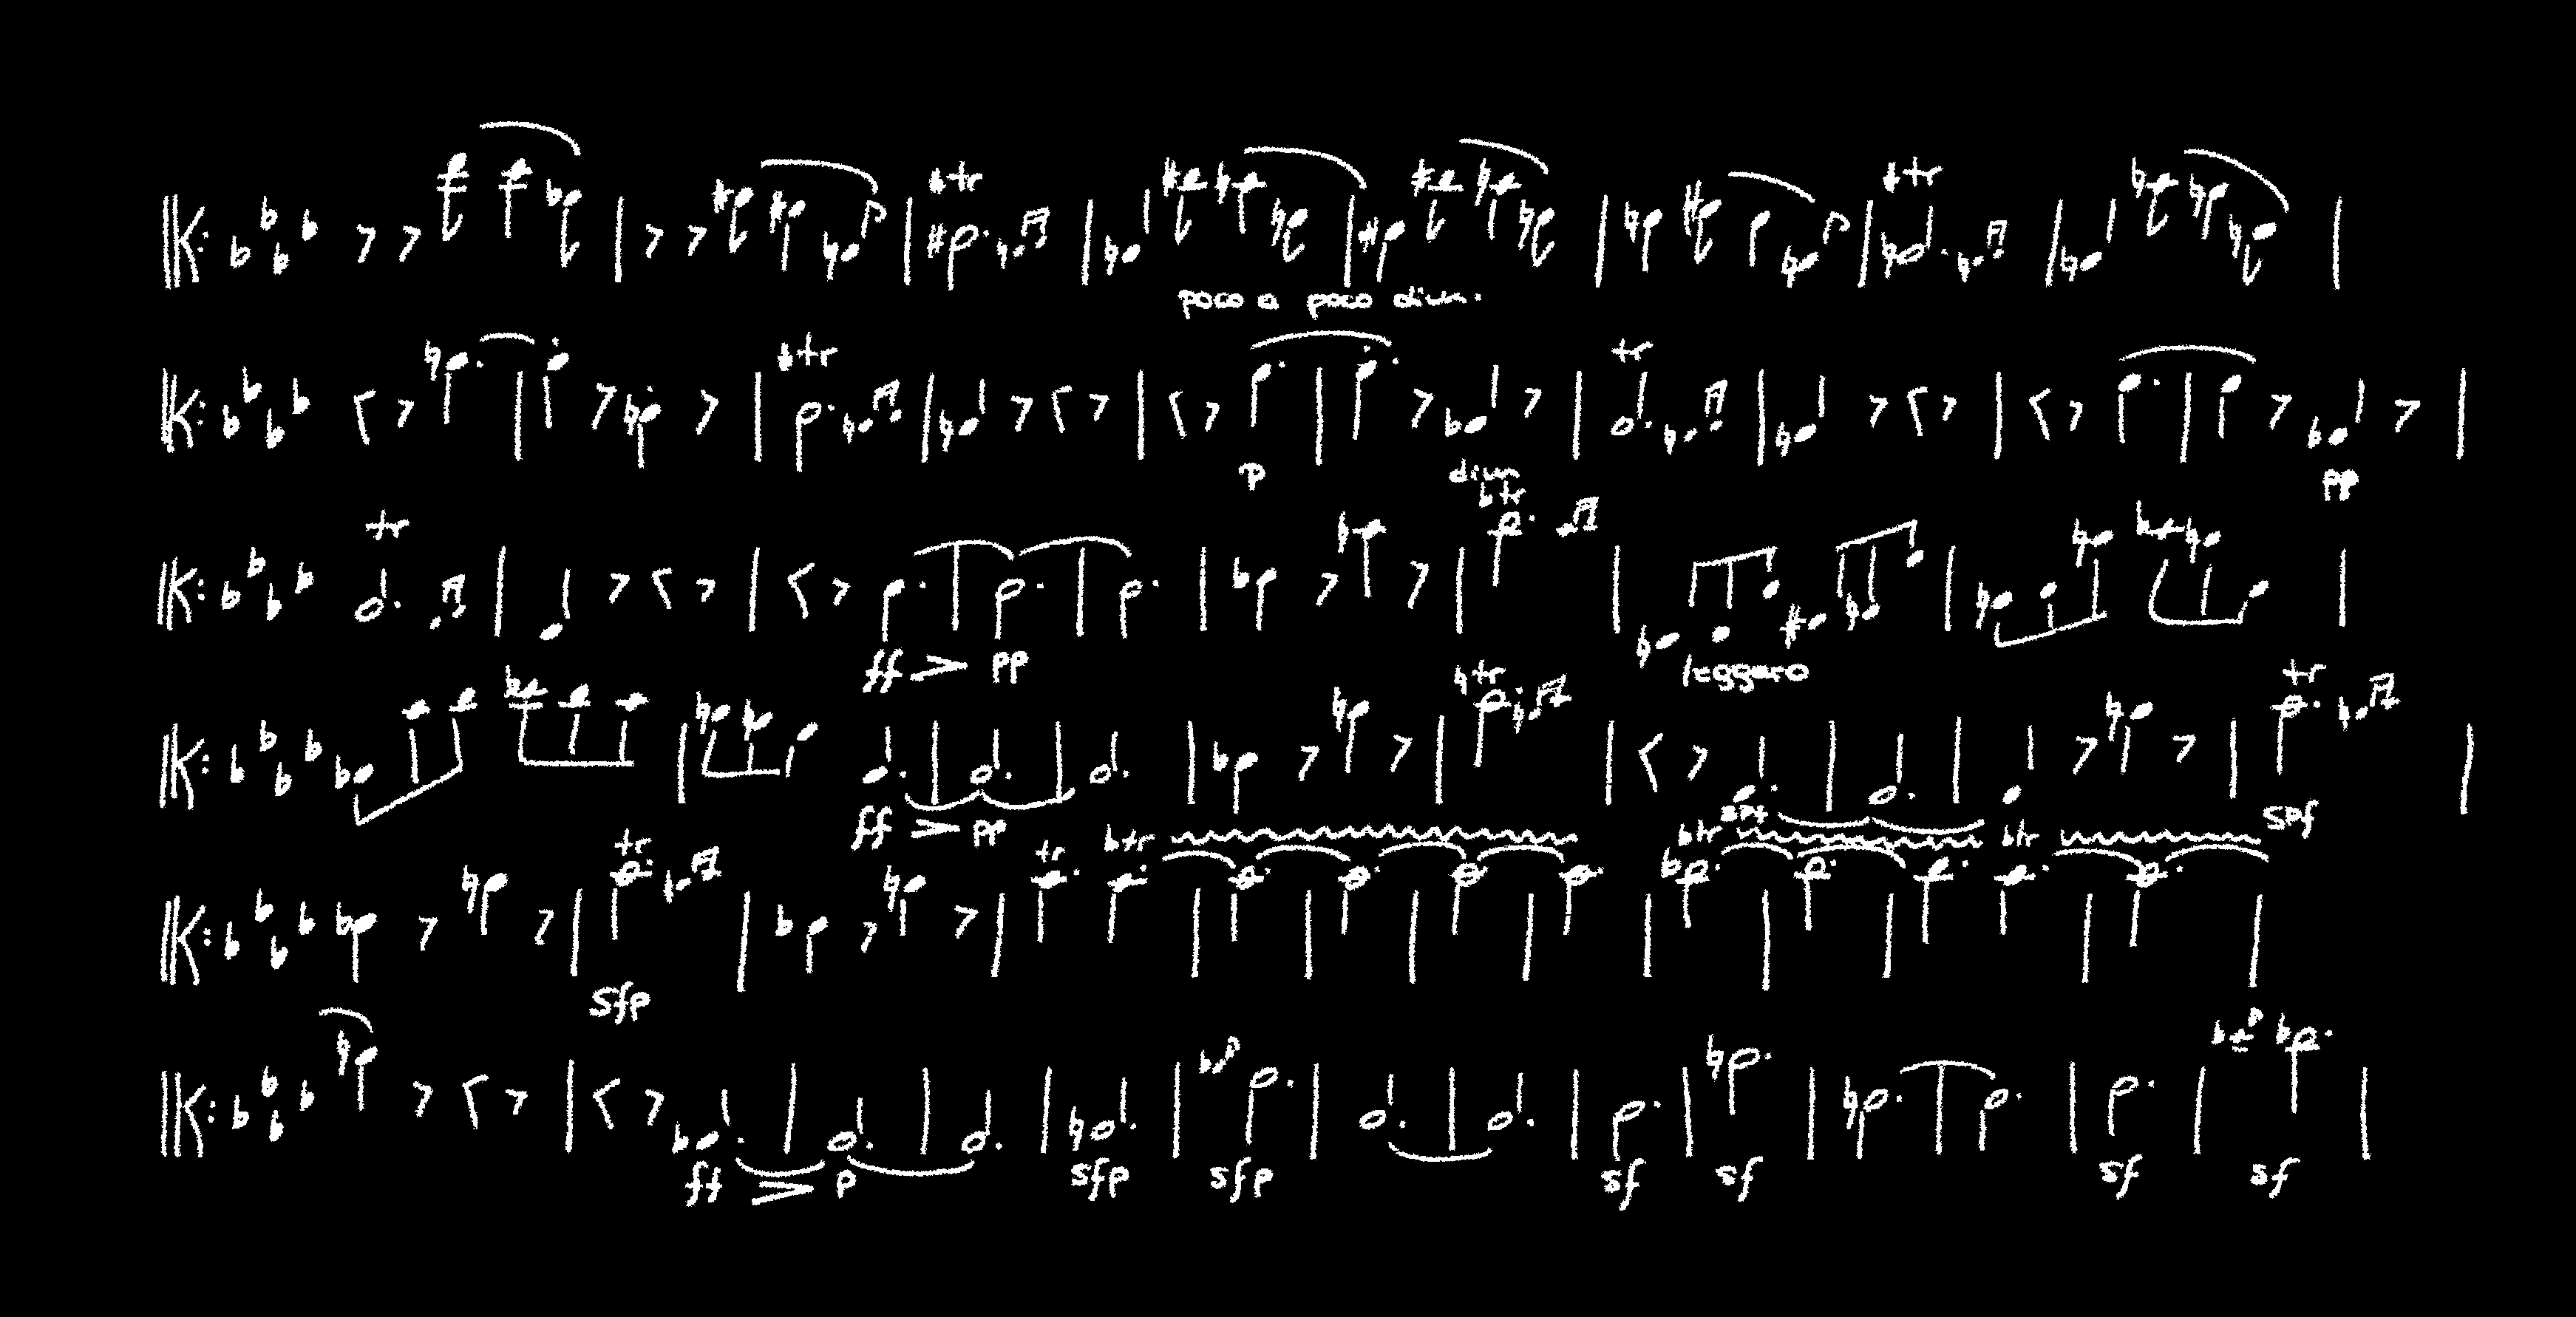 tr tr
poco a poco dim.
tr tr
p dim pp
tr tr
ff pp leggero
tr tr
ff pp spf
tr tr btr btr btr
sfp
ff p sfp sfp sf sf sf sf